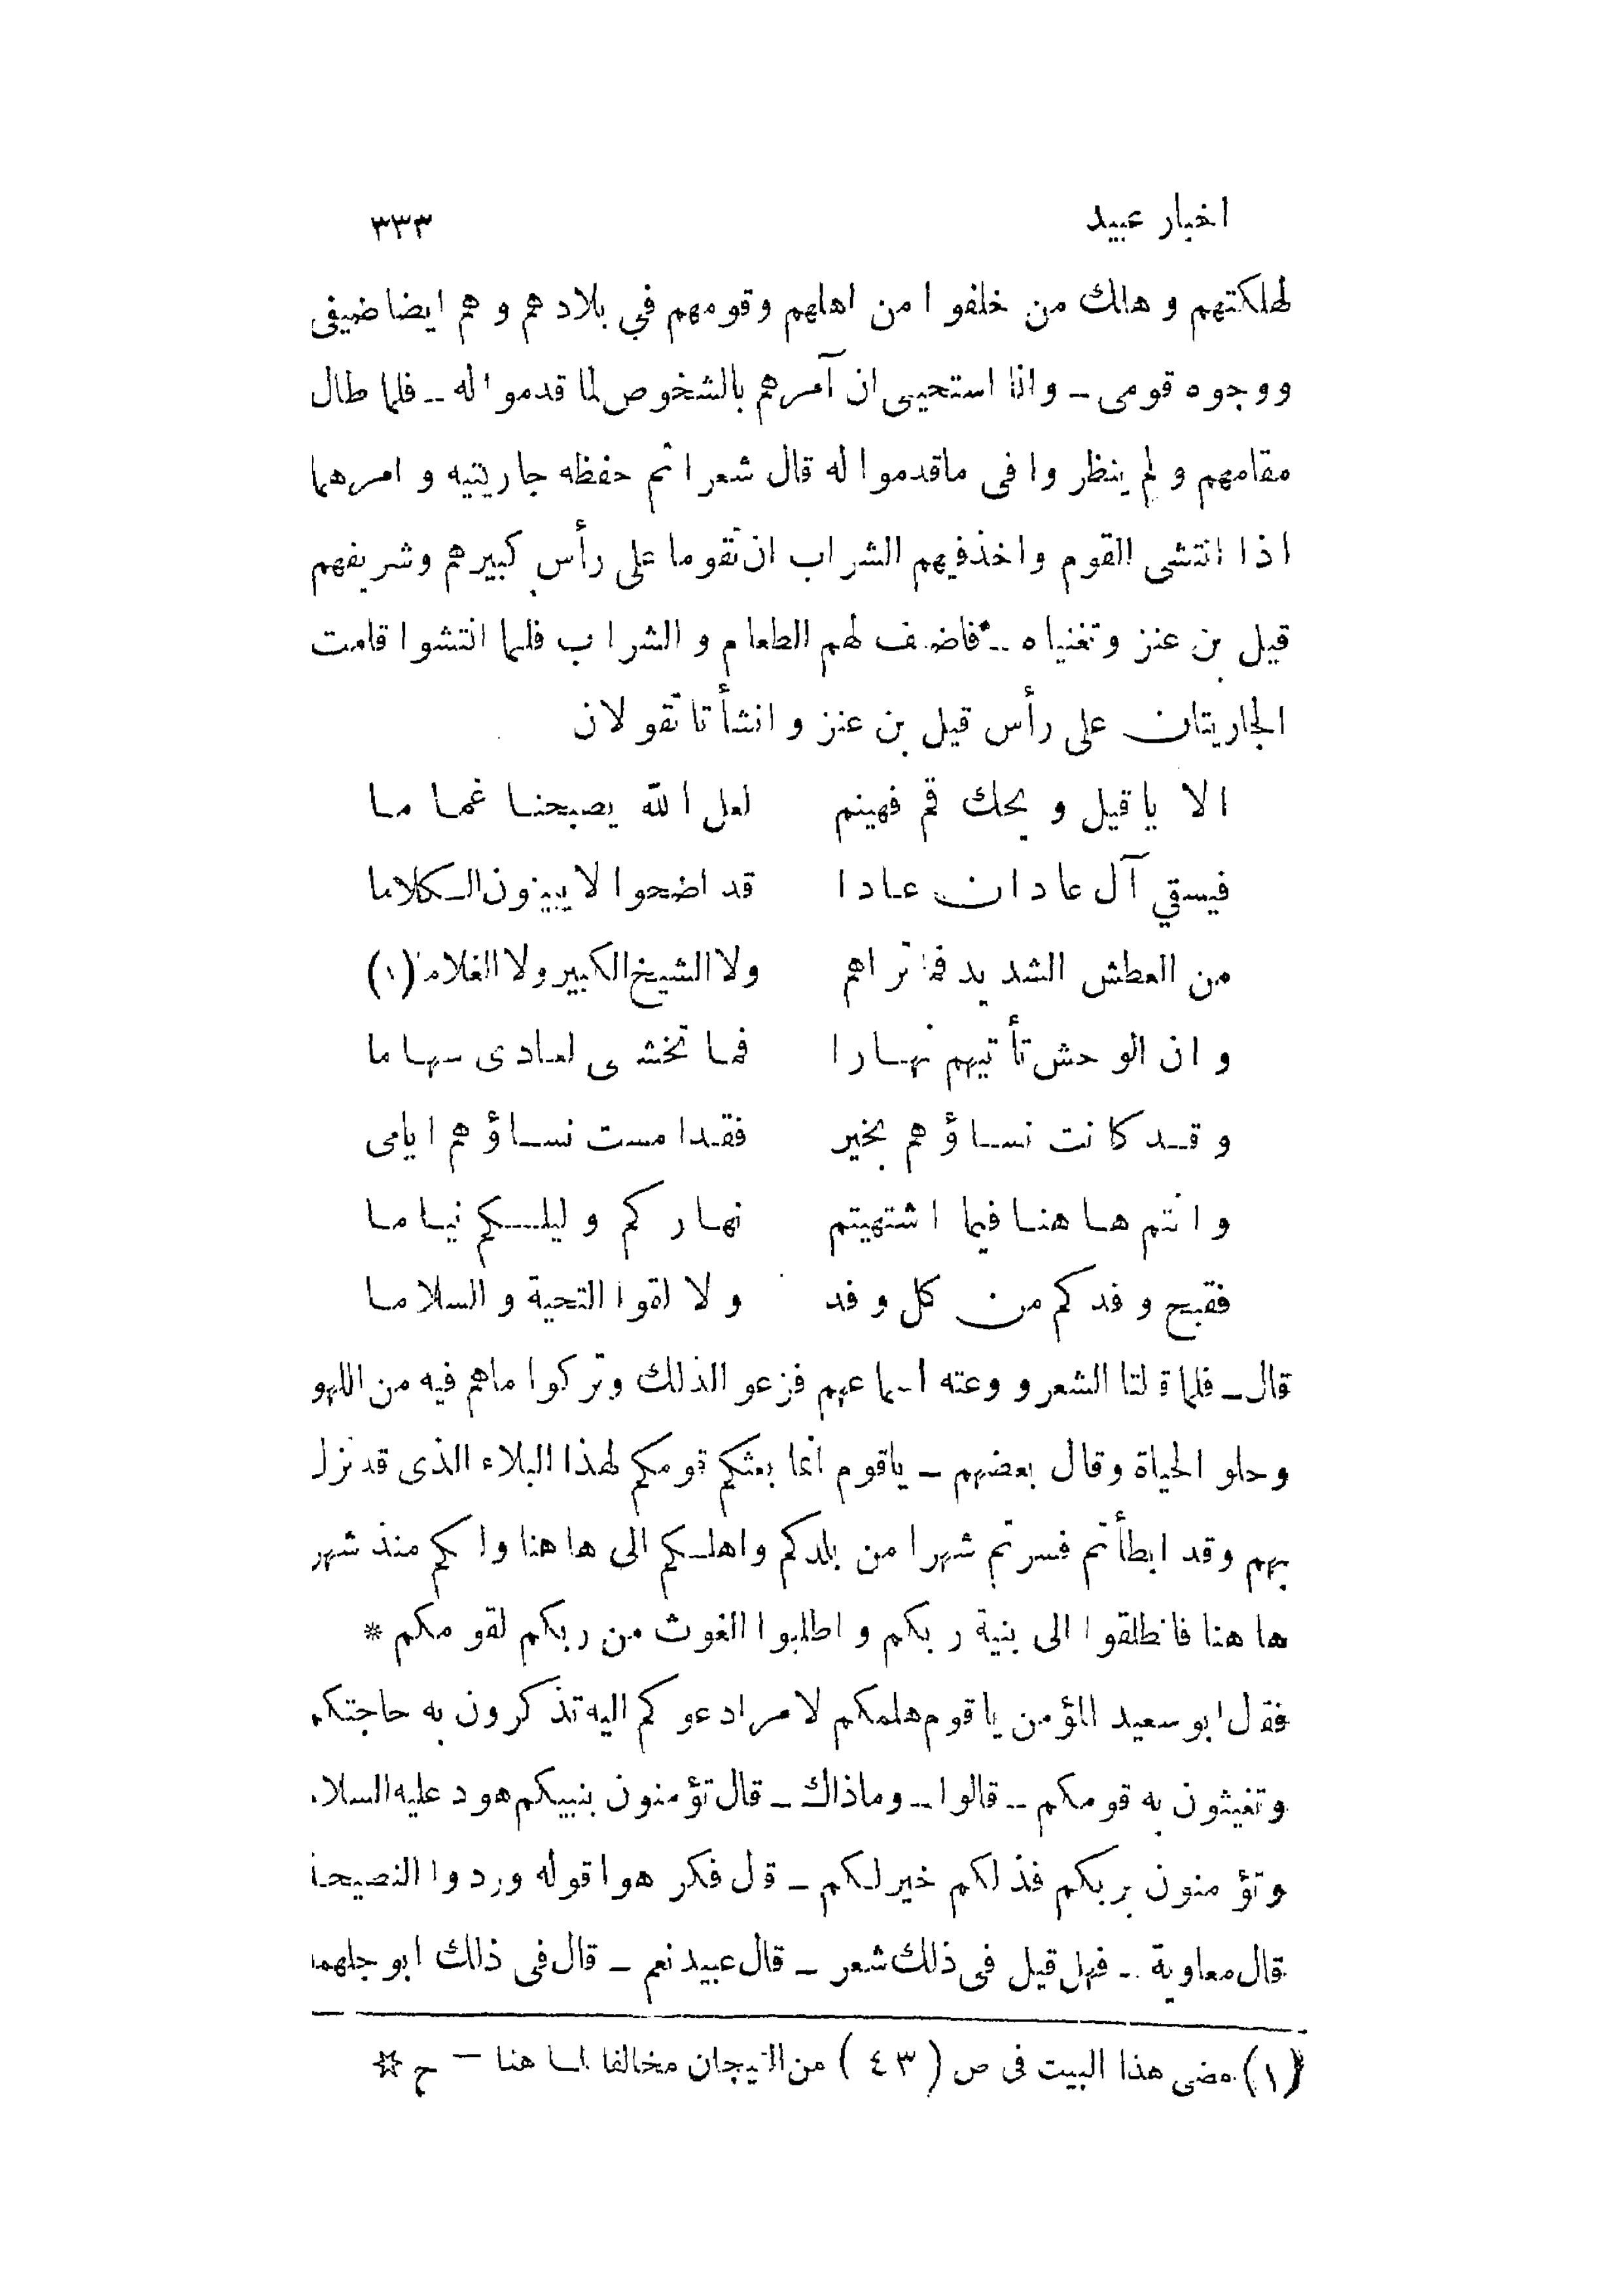 اخبار عبيد ٣٣٣
لهلكتهم و هالك من خلفوا من اهلهم وقومهم في بلادهم و هم ايضا ضيفى
ووجوه قومى ـ وانا استحيى ان آمرهم بالشخوص لما قدموا له ـ فلما طال
مقامهم و لم ينظروا فى ماقدموا له قال شعرا ثم حفظه جاريتيه و امرهما
اذا انتشى القوم واخذفيهم الشراب ان تقوما على رأس كبيرهم وشريفهم
قيل بن عنز وتغنياه ـ فاضيف لهم الطعام و الشراب فلما انتشوا قامت
الجاريتان على رأس قيل بن عنز و انشأتا تقولان
الا ياقيل ويحك قم فهينم لعل الله يصبحنا غماما
فيسقي آل عاد ان عادا قد اضحوا لا يبينون الكلاما
من العطش الشديد فما تراهم ولا الشيخ الكبير ولا الغلاما (١)
و ان الوحش تأتيهم نهارا فما تخشى لعادى سهاما
وقد كانت نساؤهم بخير فقد امست نساؤهم ايامى
و انتم ها هنا فيما اشتهيتم نهاركم و ليلكم نياما
فقبح وفدكم من كل وفد و لا لقوا التحية و السلاما
قال ـ فلما قالتا الشعر و وعته اسماعهم فزعوا لذلك وتركوا ماهم فيه من اللهو
وحلو الحياة وقال بعضهم ـ ياقوم انما بعثكم قومكم لهذا البلاء الذى قد نزل
بهم وقد ابطأتم فسرتم شهرا من بلدكم واهلكم الى ها هنا ولكم منذ شهر
ها هنا فانطلقوا الى بنية ربكم و اطلبوا الغوث من ربكم لقومكم *
فقال ابو سعيد المؤمن ياقوم هلمكم لامر ادعوكم اليه تذكرون به حاجتكم
وتغيثون به قومكم ـ قالوا ـ وماذاك ـ قال تؤمنون بنبيكم هود عليه السلام
وتؤمنون بربكم فذلكم خير لكم ـ قال فكرهوا قوله وردوا النصيحة
قال معاوية ـ فهل قيل فى ذلك شعر ـ قال عبيد نعم ـ قال فى ذلك ابو جلهمة
(١) مضى هذا البيت فى ص (٤٣) من التيجان مخالفا لما هنا — ح *